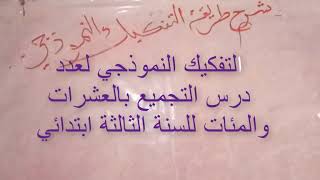 شرح طريقة التفكيك النموذجي
التفكيك النموذجي لعدد
درس التجميع بالعشرات
والمئات للسنة الثالثة ابتدائي